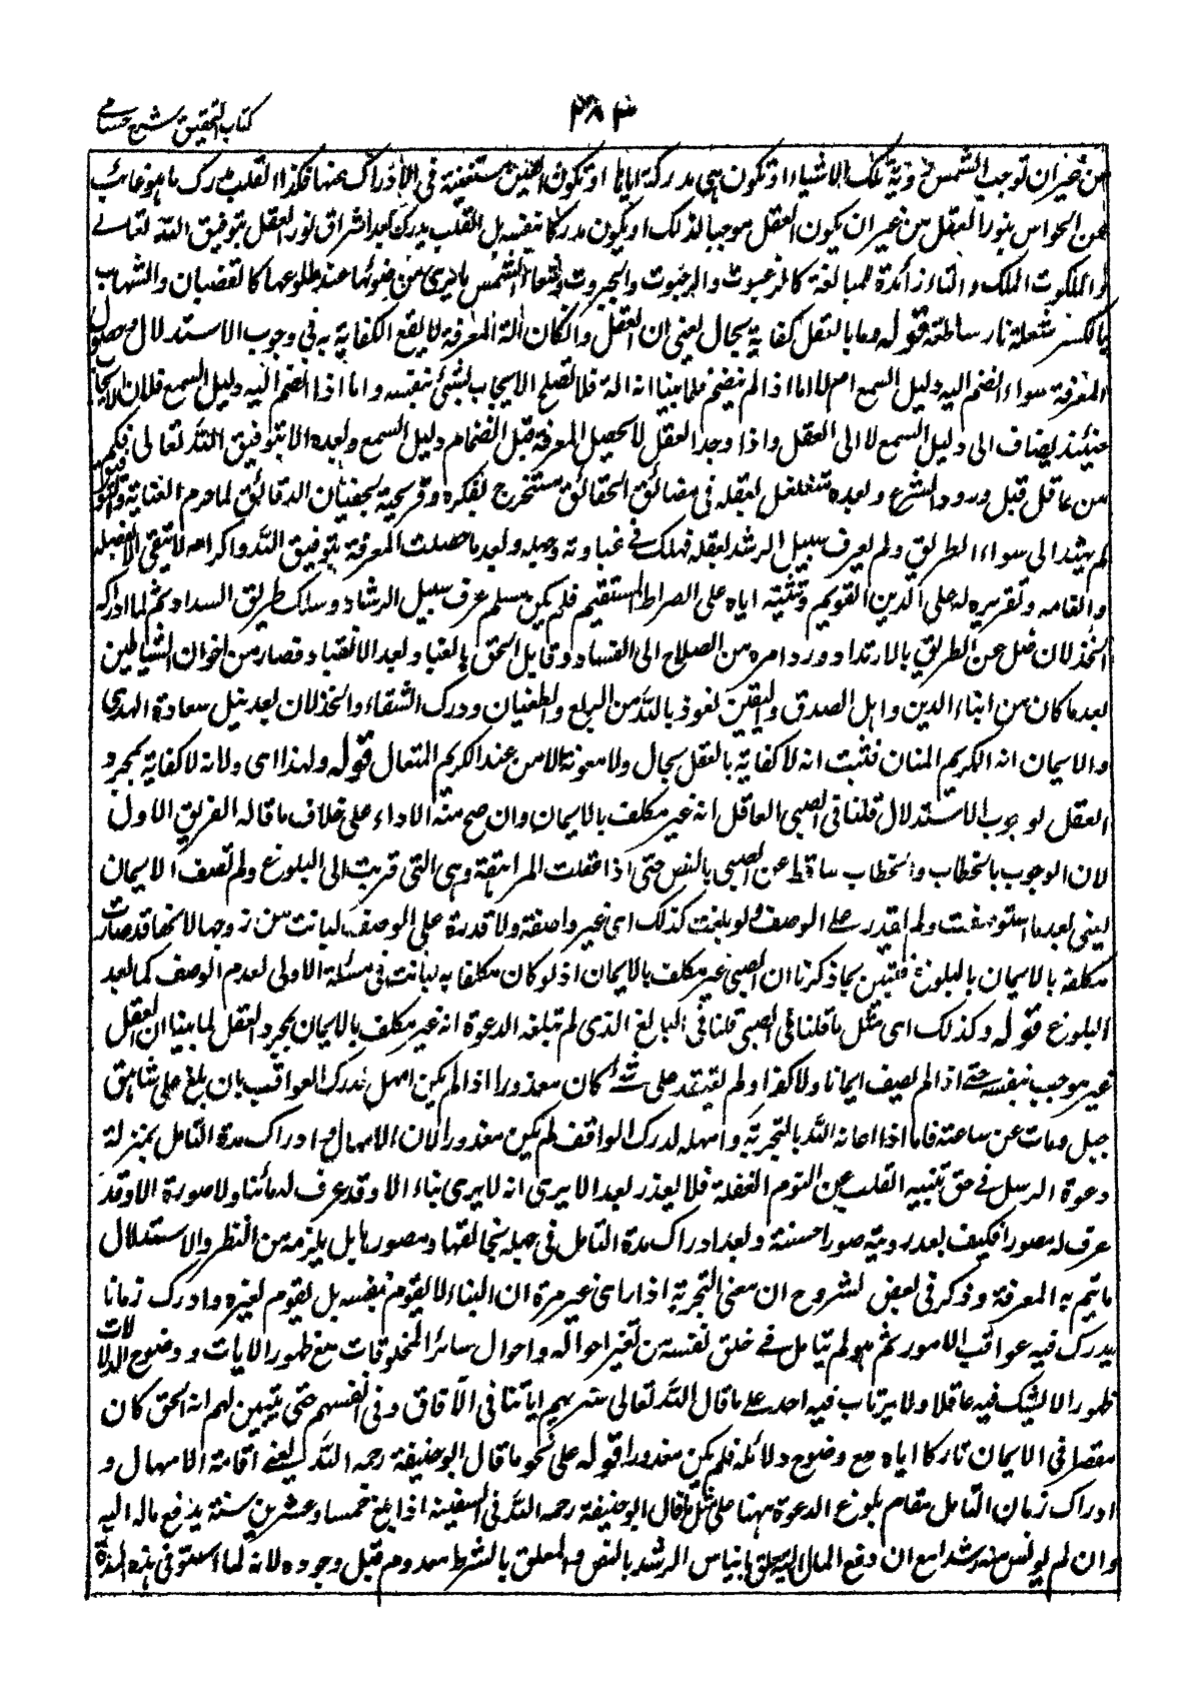 كتاب التحقيق شرح حسامى
٢٨٣
من غير ان توجب الشمس رؤية تلك الاشياء او تكون هى مدركة اياها او تكون العين مستغنية فى الادراك عنها فكذا القلب يدرك ما هو غائب
عن الحواس بنور العقل من غير ان يكون العقل موجبا لذلك او يكون مدركا بنفسه بل القلب يدرك بعد اشراق نور العقل بتوفيق الله تعالى
والملكوت الملك والتاء زائدة للمبالغة كالرغبوت والرهبوت والجبروت وشعاع الشمس ما يرى من ضوئها عند طلوعها كالقضبان والشهاب
بالكسر شعلة نار ساطعة قوله وما بالعقل كفاية بحال يعنى ان العقل وان كان آلة المعرفة لا يقع الكفاية به فى وجوب الاستدلال وحصول
المعرفة سواء انضم اليه دليل السمع ام لا اما اذا لم ينضم فلما بينا انه آلة فلا تصلح لايجاب شئ بنفسه واما اذا انضم اليه دليل السمع فلان الايجاب
حينئذ يضاف الى دليل السمع لا الى العقل واذا وجد العقل لا تحصل المعرفة قبل انضمام دليل السمع وبعده الا بتوفيق الله تعالى فكم
من عاقل قبل ورود الشرع وبعده متغلغل بعقله فى مضائق الحقائق مستخرج بفكره وقريحته خفيات الدقائق لما حرم العناية والتوفيق
لم يهتد الى سواء الطريق ولم يعرف سبيل الرشد بعقله فهلك فى غباوته وجهله وبعد ما حصلت المعرفة بتوفيق الله واكرامه لا تبقى الا بفضله
وانعامه وتقريره له على الدين القويم وتثبيته اياه على الصراط المستقيم فكم من مسلم عرف سبيل الرشاد وسلك طريق السداد ثم لما ادركه
الخذلان ضل عن الطريق بالارتداد ورد امره من الصلاح الى الفساد وقابل الحق بالعناد بعد الانقياد فصار من اخوان الشياطين
بعد ما كان من ابناء الدين واهل الصدق واليقين نعوذ بالله من الزيغ والطغيان ودرك الشقاء والخذلان بعد نيل سعادة الهدى
والايمان انه الكريم المنان فثبت انه لا كفاية بالعقل بحال ولا معونة الا من عند الكريم المتعال قوله ولهذا اى ولانه لا كفاية بمجرد
العقل لوجوب الاستدلال قلنا فى الصبى العاقل انه غير مكلف بالايمان وان صح منه الاداء على خلاف ما قاله الفريق الاول
لان الوجوب بالخطاب والخطاب ساقط عن الصبى بالنص حتى اذا عقلت المراهقة وهى التى قربت الى البلوغ ولم تصف الايمان
يعنى بعد ما استوصفت ولم تقدر على الوصف ولو بلغت كذلك اى غير واصفة ولا قدرة على الوصف لبانت من زوجها لانها قد صارت
مكلفة بالايمان بالبلوغ فتبين بما ذكرنا ان الصبى غير مكلف بالايمان اذ لو كان مكلفا به لبانت فى مسئلة الاولى لعدم الوصف كما بعد
البلوغ قوله وكذلك اى مثل ما قلنا فى الصبى قلنا فى البالغ الذى لم تبلغه الدعوة انه غير مكلف بالايمان بمجرد العقل لما بينا ان العقل
غير موجب بنفسه حتى اذا لم يصف ايمانا ولا كفرا ولم يعتقد على شئ كان معذورا اذا لم يكن امهل لدرك العواقب بان بلغ على شاهق
جبل ومات عن ساعته فاما اذا اعانه الله بالتجربة وامهله لدرك العواقب لم يكن معذورا لان الامهال وادراك مدة التأمل بمنزلة
دعوة الرسل فى حق تنبيه القلب عن النوم الغفلة فلا يعذر بعد الا يرى انه لا يرى بناء الا وقد عرف له بانيا ولا صورة الا وقد
عرف له مصورا فكيف يعذر بعد رؤية صورا حسنة وبعد ادراك مدة التأمل فى جهله بخالقها ومصورها بل يلزمه من النظر والاستدلال
ما يتم به المعرفة وذكر فى بعض الشروح ان معنى التجربة اذا راى غير مرة ان البناء لا يقوم بنفسه بل يقوم بغيره وادرك زمانا
يدرك فيه عواقب الامور ثم هو لم يتأمل فى خلق نفسه من تغير احواله واحوال سائر المخلوقات مع ظهور الايات ووضوح الدلالات
ظهورا لا يشك فيه عاقلا ولا يرتاب فيه احد على ما قال الله تعالى سنريهم اياتنا فى الآفاق وفى انفسهم حتى يتبين لهم انه الحق كان
مقصرا فى الايمان تاركا اياه مع وضوح دلائله فلم يكن معذورا قوله على نحو ما قال ابو حنيفة رحمه الله يعنى اقامة الامهال و
ادراك زمان التأمل مقام بلوغ الدعوة ههنا على مثل ما قال ابو حنيفة رحمه الله فى السفيه اذا بلغ خمسا وعشرين سنة يدفع ماله اليه
وان لم يونس منه رشد مع ان دفع المال اليه معلق بايناس الرشد بالنص والمعلق بالشرط معدوم قبل وجوده لانه لما استوفى هذه المدة